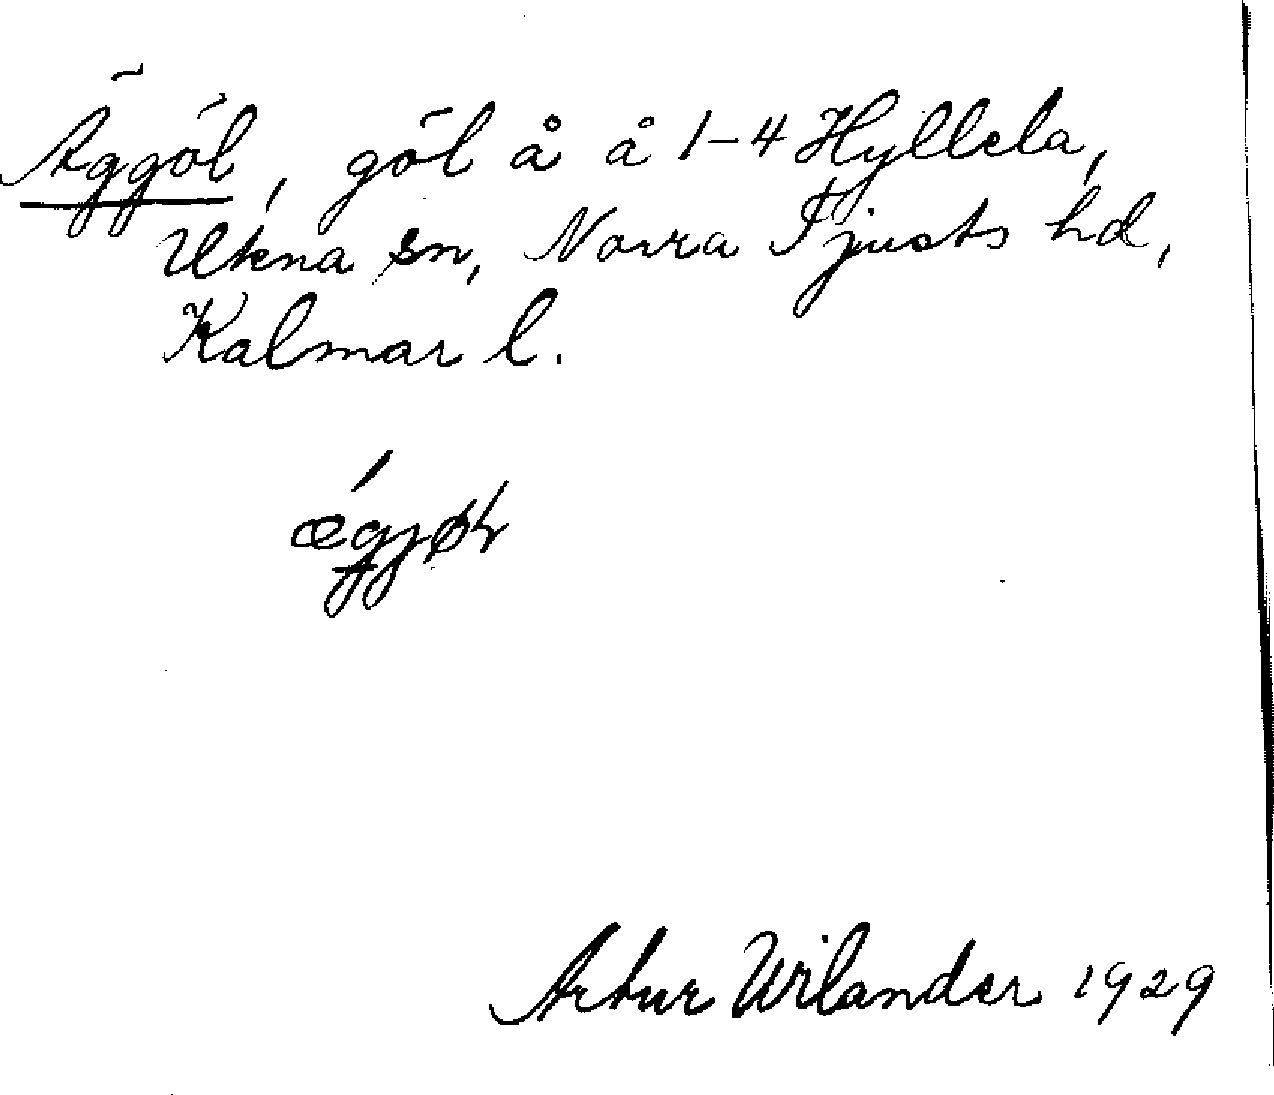 Äggöl, göl å å 1-4 Hyllela,
Ukna sn, Norra Tjusts hd,
Kalmar l.
Artur Wilander 1929